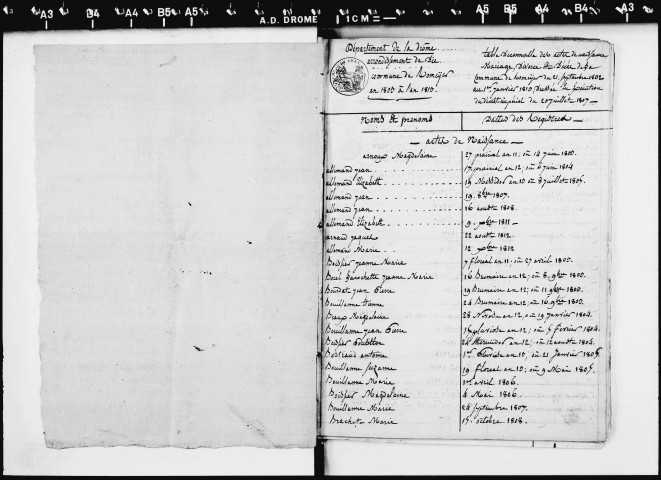 A3 B4 A4 B5 A5 A.D. DROME 1 CM A5 B5 A4 B4 A3
Département de la drôme
arrondissement de Die
commune de
an 1803 à l'an 1813
table Décennalle des actes de naissance
Mariage, Divorce et Décès de la
commune de du 21 septembre 1802
au 1er janvier 1813
du Décret impérial du 20 juillet 1807
Noms et prenoms Dattes des Registres
actes de Naissance
arnoux Magdelaine 27 prairial an 11; ou 1803.
allemand jean 17 prairial an 12; ou 6 juin 1804
allemand Elizabeth 19 Messidor an 13 ou 8 juillet 1805.
allemand jean 19. 8bre 1807.
allemand jean 26 aoust 1808.
allemand Elizabeth 9. 1811
arnaud jaques 22 aoust 1812.
allemand Marie 12 1812
jeanne Marie 7 floreal an 11; ou 27 avril 1803.
Borel jeanne Marie 16 Brumaire an 12; ou 8. 9bre 1803.
jean Pierre 19 Brumaire an 12; ou 11 9bre 1803.
Bouillanne 24 Brumaire an 12; ou 16 9bre 1803.
Magdelaine 28 Nivose an 12; ou 19 janvier 1804.
Bouillanne jean Pierre pluviose an 12; ou 5 fevrier 1804.
24 thermidor an 12; ou 12 aoust 1804.
antoine 1er Pluviose an 13; ou 21 janvier 1805.
Bouillanne Suzanne 19 floreal an 13; ou 9 Mai 1805.
Bouillanne Marie 1er avril 1806.
Magdelaine 4 Mai 1806.
Bouillanne Marie 24 septembre 1807.
Brachet Marie 17 octobre 1808.
A3 B4 A4 B5 A5 A5 B5 A4 B4 A3